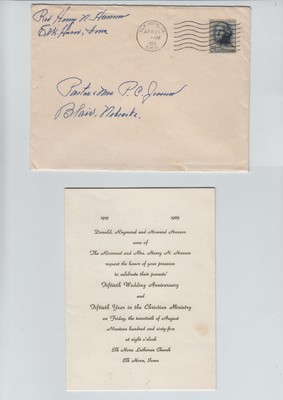 Rev Henry N. Hansen
Elk Horn, Iowa
Pastor & Mrs P. C. Jensen
Blair, Nebraska.
1915 1965
Donald, Raymond and Howard Hansen
sons of
The Reverend and Mrs. Henry N. Hansen
request the honor of your presence
to celebrate their parents'
Fiftieth Wedding Anniversary
and
Fiftieth Year in the Christian Ministry
on Friday, the twentieth of August
Nineteen hundred and sixty-five
at eight o'clock
Elk Horn Lutheran Church
Elk Horn, Iowa